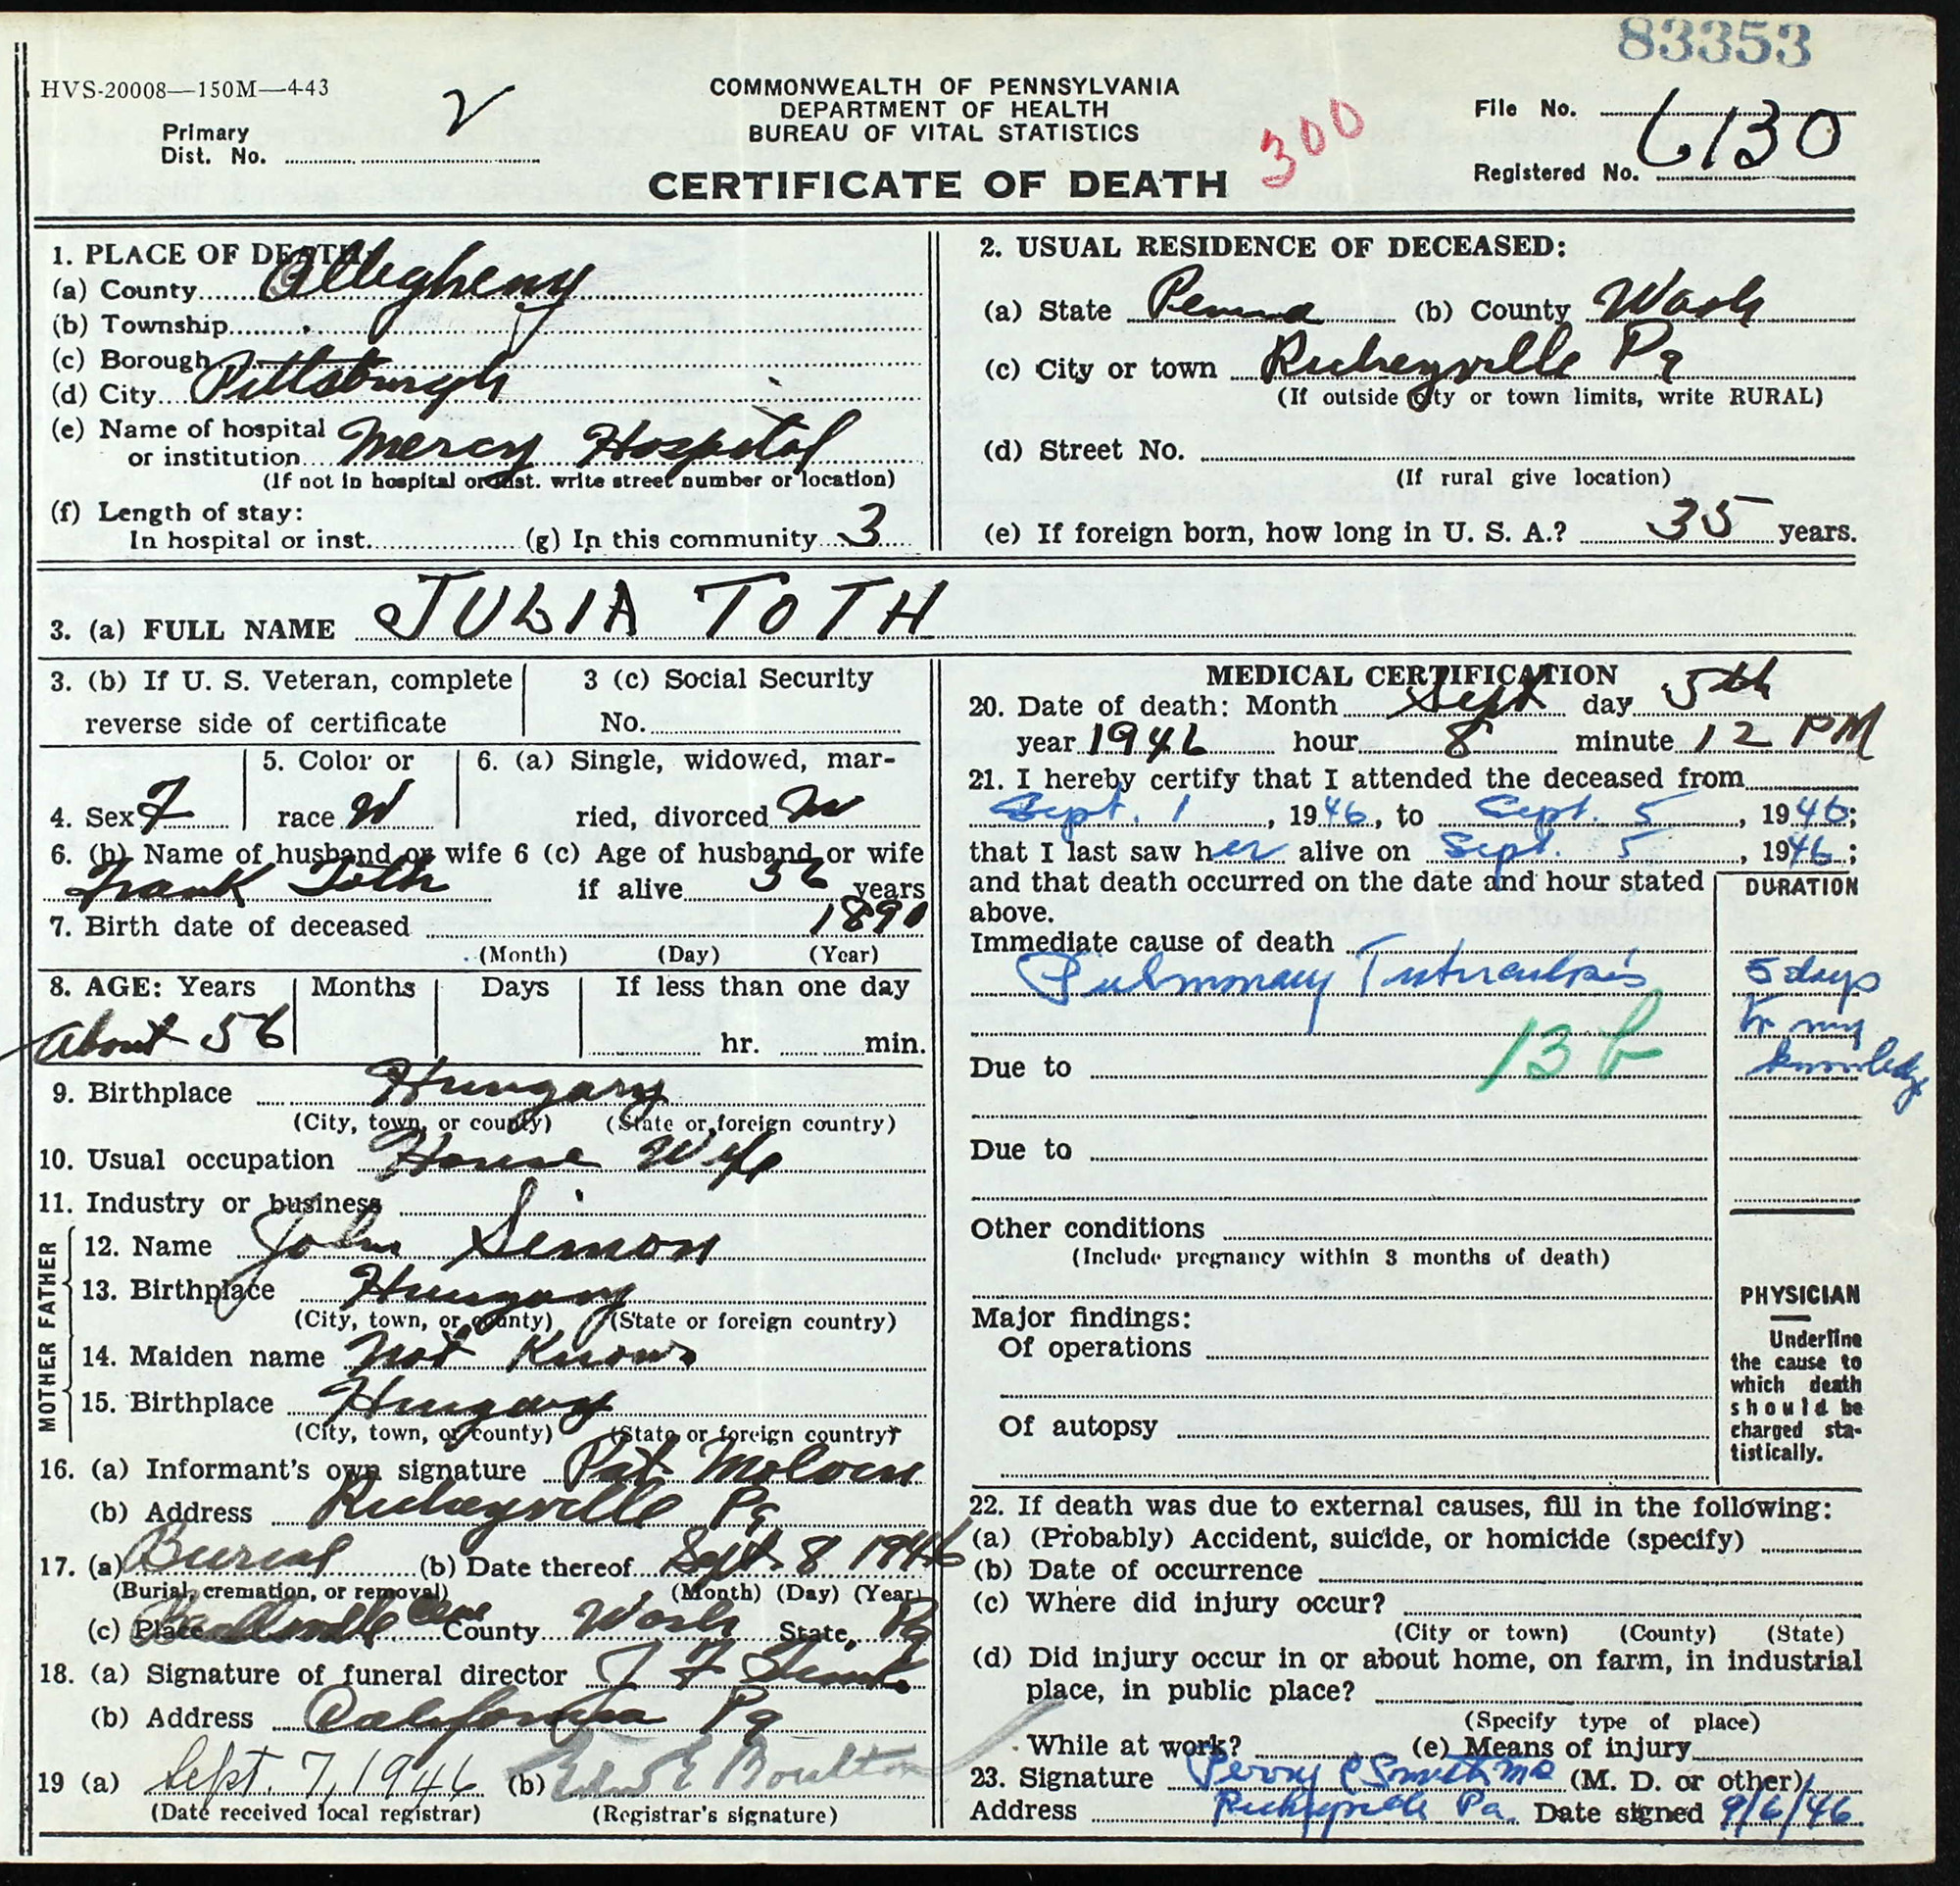 83353
HVS-20008—150M—4-43
COMMONWEALTH OF PENNSYLVANIA
DEPARTMENT OF HEALTH
BUREAU OF VITAL STATISTICS
CERTIFICATE OF DEATH
300
Primary
Dist. No.
File No.
Registered No. 6130
1. PLACE OF DEATH:
(a) County Allegheny
(b) Township
(c) Borough
(d) City Pittsburgh
(e) Name of hospital
or institution Mercy Hospital
(If not in hospital or inst. write street number or location)
(f) Length of stay:
In hospital or inst. (g) In this community 3
2. USUAL RESIDENCE OF DECEASED:
(a) State Penna (b) County Wash
(c) City or town Richeyville Pa
(If outside city or town limits, write RURAL)
(d) Street No.
(If rural give location)
(e) If foreign born, how long in U. S. A.? 35 years.
3. (a) FULL NAME JULIA TOTH
3. (b) If U. S. Veteran, complete
reverse side of certificate
3 (c) Social Security
No.
4. Sex F
5. Color or
race W
6. (a) Single, widowed, mar-
ried, divorced M
6. (b) Name of husband or wife 6 (c) Age of husband or wife
Frank Toth if alive 56 years
7. Birth date of deceased 1890
(Month) (Day) (Year)
8. AGE: Years Months Days If less than one day
About 56 hr. min.
9. Birthplace Hungary
(City, town, or county) (State or foreign country)
10. Usual occupation House Wife
11. Industry or business
FATHER
12. Name John Simon
13. Birthplace Hungary
(City, town, or county) (State or foreign country)
MOTHER
14. Maiden name Not Known
15. Birthplace Hungary
(City, town, or county) (State or foreign country)
16. (a) Informant's own signature Pit
(b) Address Richeyville Pa
17. (a) Burial (b) Date thereof Sept. 8 1946
(Burial, cremation, or removal) (Month) (Day) (Year)
(c) Place Cem County Wash State, Pa
18. (a) Signature of funeral director J F
(b) Address California Pa
19 (a) Sept. 7, 1946 (b) E Moulton
(Date received local registrar) (Registrar's signature)
MEDICAL CERTIFICATION
20. Date of death: Month Sept day 5th
year 1946 hour 8 minute 12 PM
21. I hereby certify that I attended the deceased from
Sept. 1, 1946, to Sept. 5, 1946;
that I last saw her alive on Sept. 5, 1946;
and that death occurred on the date and hour stated
above.
DURATION
Immediate cause of death
Pulmonary Tuberculosis 5 days
to my
knowledge
13 b
Due to
Due to
Other conditions
(Include pregnancy within 3 months of death)
Major findings:
Of operations
Of autopsy
PHYSICIAN
Underline
the cause to
which death
should be
charged sta-
tistically.
22. If death was due to external causes, fill in the following:
(a) (Probably) Accident, suicide, or homicide (specify)
(b) Date of occurrence
(c) Where did injury occur?
(City or town) (County) (State)
(d) Did injury occur in or about home, on farm, in industrial
place, in public place?
(Specify type of place)
While at work? (e) Means of injury
23. Signature Perry C Smith MD (M. D. or other)
Address Richeyville Pa. Date signed 9/6/46